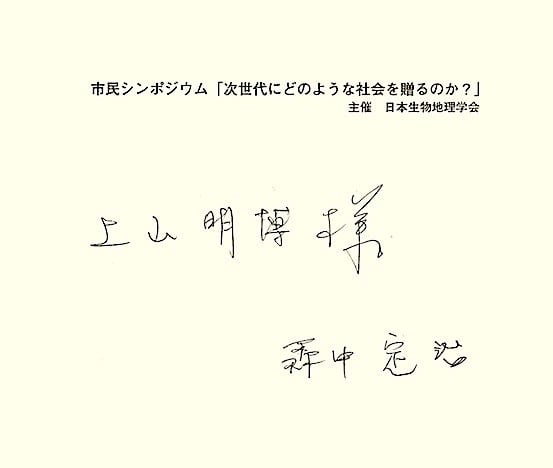 市民シンポジウム「次世代にどのような社会を贈るのか？」
主催　日本生物地理学会
上山明博様
森中定治